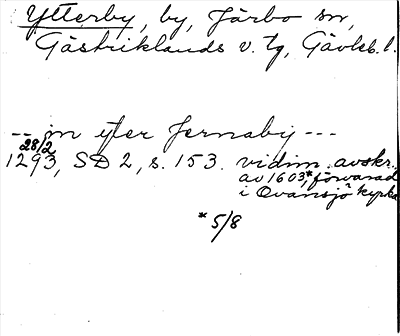 Ytterby, by, Järbo sn,
Gästriklands v. tg, Gävleb. l.
-- in ytter Jernaby ---
28/2
1293, SD 2, s. 153. vidim. avskr.
av 1603,* förvarad
i Ovansjö kyrka
* 5/8